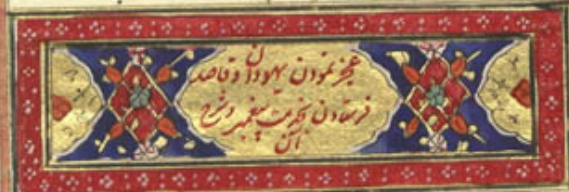 عجز نمودن یهودان و قاصد
فرستادن بخدمت پیغمبر و شرح
آن